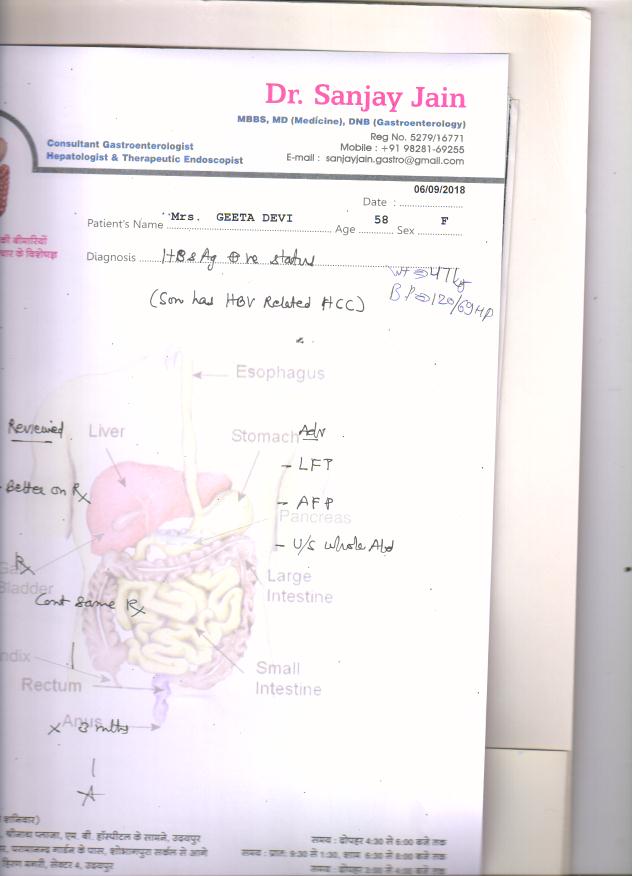 Dr. Sanjay Jain
MBBS, MD (Medicine), DNB (Gastroenterology)
Reg No. 5279/16771
Mobile : +91 98281-69255
E-mail : sanjayjain.gastro@gmail.com
Consultant Gastroenterologist
Hepatologist & Therapeutic Endoscopist
06/09/2018
Date : ..................
Patient's Name Mrs. GEETA DEVI Age 58 Sex F
की बीमारियों
चार के विशेषज्ञ
Diagnosis HBsAg ⊕ve status
Wt 47kg
BP 120/69
(Son has HBV Related HCC)
Esophagus
Reviewed
Liver
Stomach
Adv
- LFT
- Better on Rx
- AFP
Pancreas
- U/S Whole Abd
Rx
Ga
Bladder
Large
Intestine
Cont same Rx
ndix
Rectum
Small
Intestine
Anus
x 3 mths
शनिवार)
श्रीनाथ प्लाजा, एम. बी. हॉस्पीटल के सामने, उदयपुर
समय : दोपहर 4:30 से 6:00 बजे तक
परमानन्द गार्डन के पास, शोभागपुरा सर्कल से आगे
समय : प्रातः 9:30 से 1:30, शाम 6:30 से 8:00 बजे तक
हिरण मगरी, सेक्टर 4, उदयपुर
समय : दोपहर 3:00 से 4:00 बजे तक